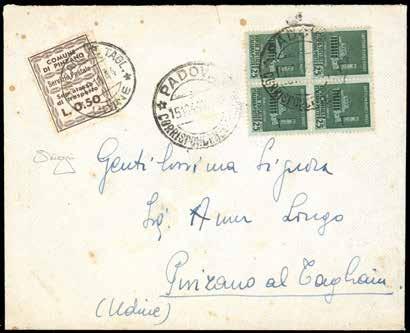 COMUNE
DI PINZANO
Servizio Postale
Soprattassa
di trasporto
L. 0.50
TAGL.
★ PADOVA
CORRISPONDENZE
25
25
25
25
Gentilissima Signora
Sig. Anna Longo
Pinzano al Tagliam
(Udine)